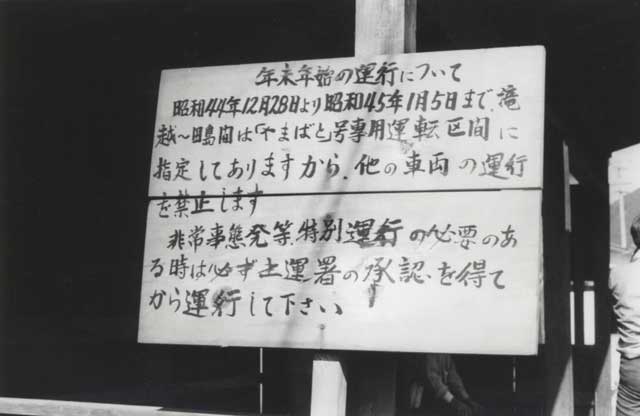 年末年始の運行について
昭和44年12月28日より昭和45年1月5日まで、滝
越〜田島間は「やまばと」号専用運転区間に
指定してありますから、他の車両の運行
を禁止します
非常事態発等、特別運行の必要のあ
る時は必ず土運署の承認を得て
から運行して下さい